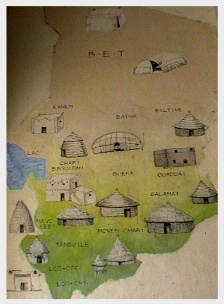 B-E-T
KANEM
BATHA
BILTINE
LAC
CHARI
BAGUIRMI
GUERA
OUADDAI
SALAMAT
MAYO
KEBI
MOYEN CHARI
TANDJILE
LOG-OCC
LOG-OR